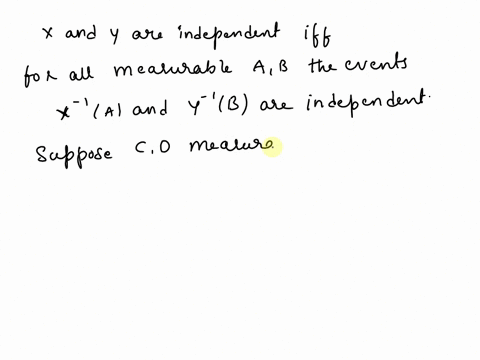 X and y are independent iff
for all measurable A,B the events
X⁻¹(A) and Y⁻¹(B) are independent.
Suppose C,D measure